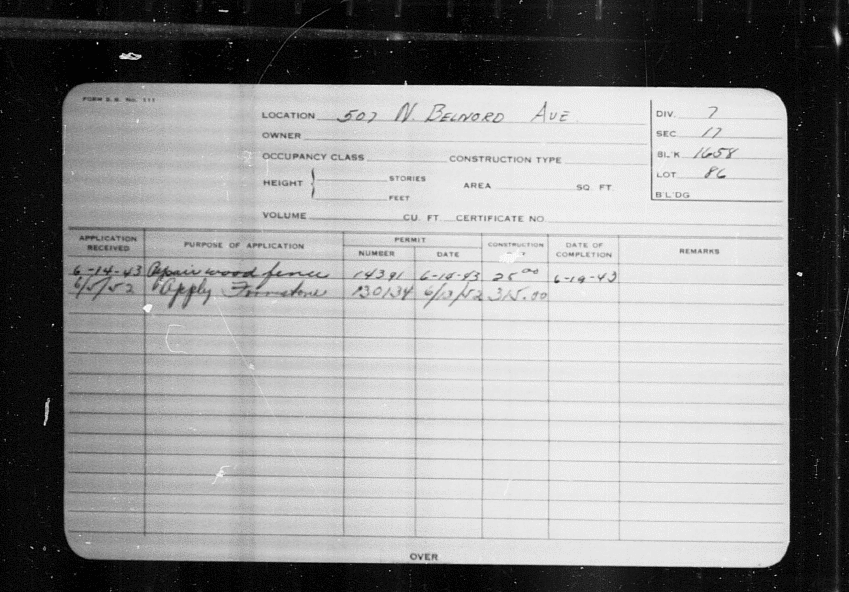 FORM E.B. No. 111
LOCATION 507 N. BELNORD AVE.
OWNER
OCCUPANCY CLASS CONSTRUCTION TYPE
HEIGHT STORIES FEET AREA SQ. FT.
VOLUME CU. FT. CERTIFICATE NO.
DIV. 7
SEC 17
BL'K 1658
LOT 86
B'L'DG
APPLICATION RECEIVED PURPOSE OF APPLICATION PERMIT NUMBER DATE CONSTRUCTION DATE OF COMPLETION REMARKS
6-14-43 Repair wood fence 14391 6-14-43 25 00 6-19-43
6/5/52 Apply Formstone 130134 6/13/52 315.00
OVER